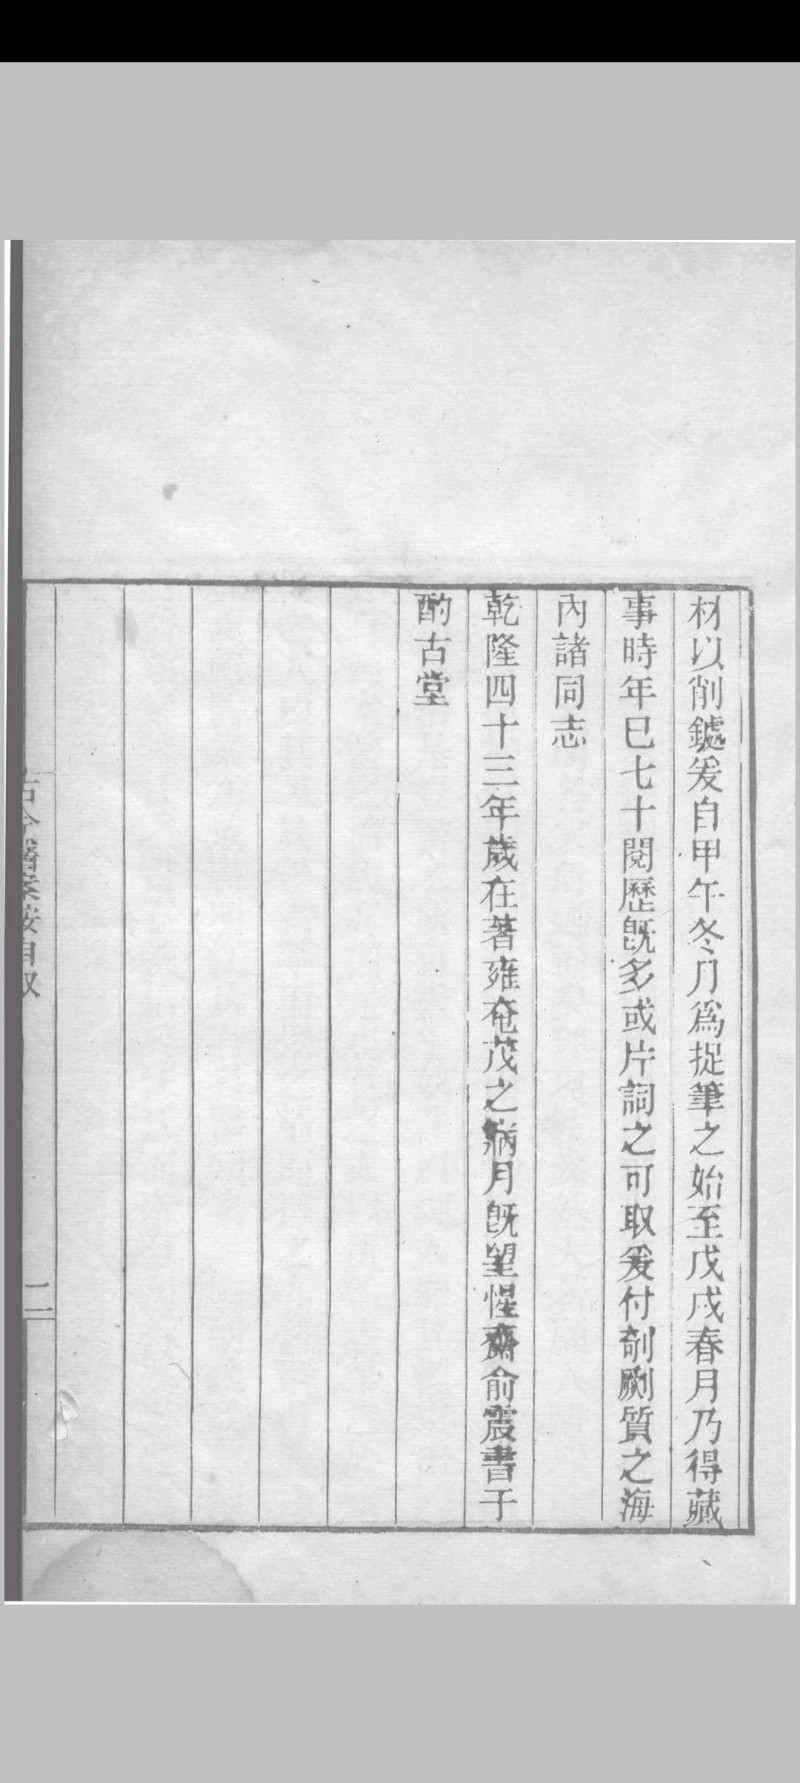 材以削鐻爰自甲午冬月爲捉筆之始至戊戌春月乃得藏
事時年巳七十閱歷既多或片詞之可取爰付剞劂質之海
內諸同志
乾隆四十三年歲在著雍奄茂之病月既望惺齋俞震書于
酌古堂
古今醫案按自叙
二